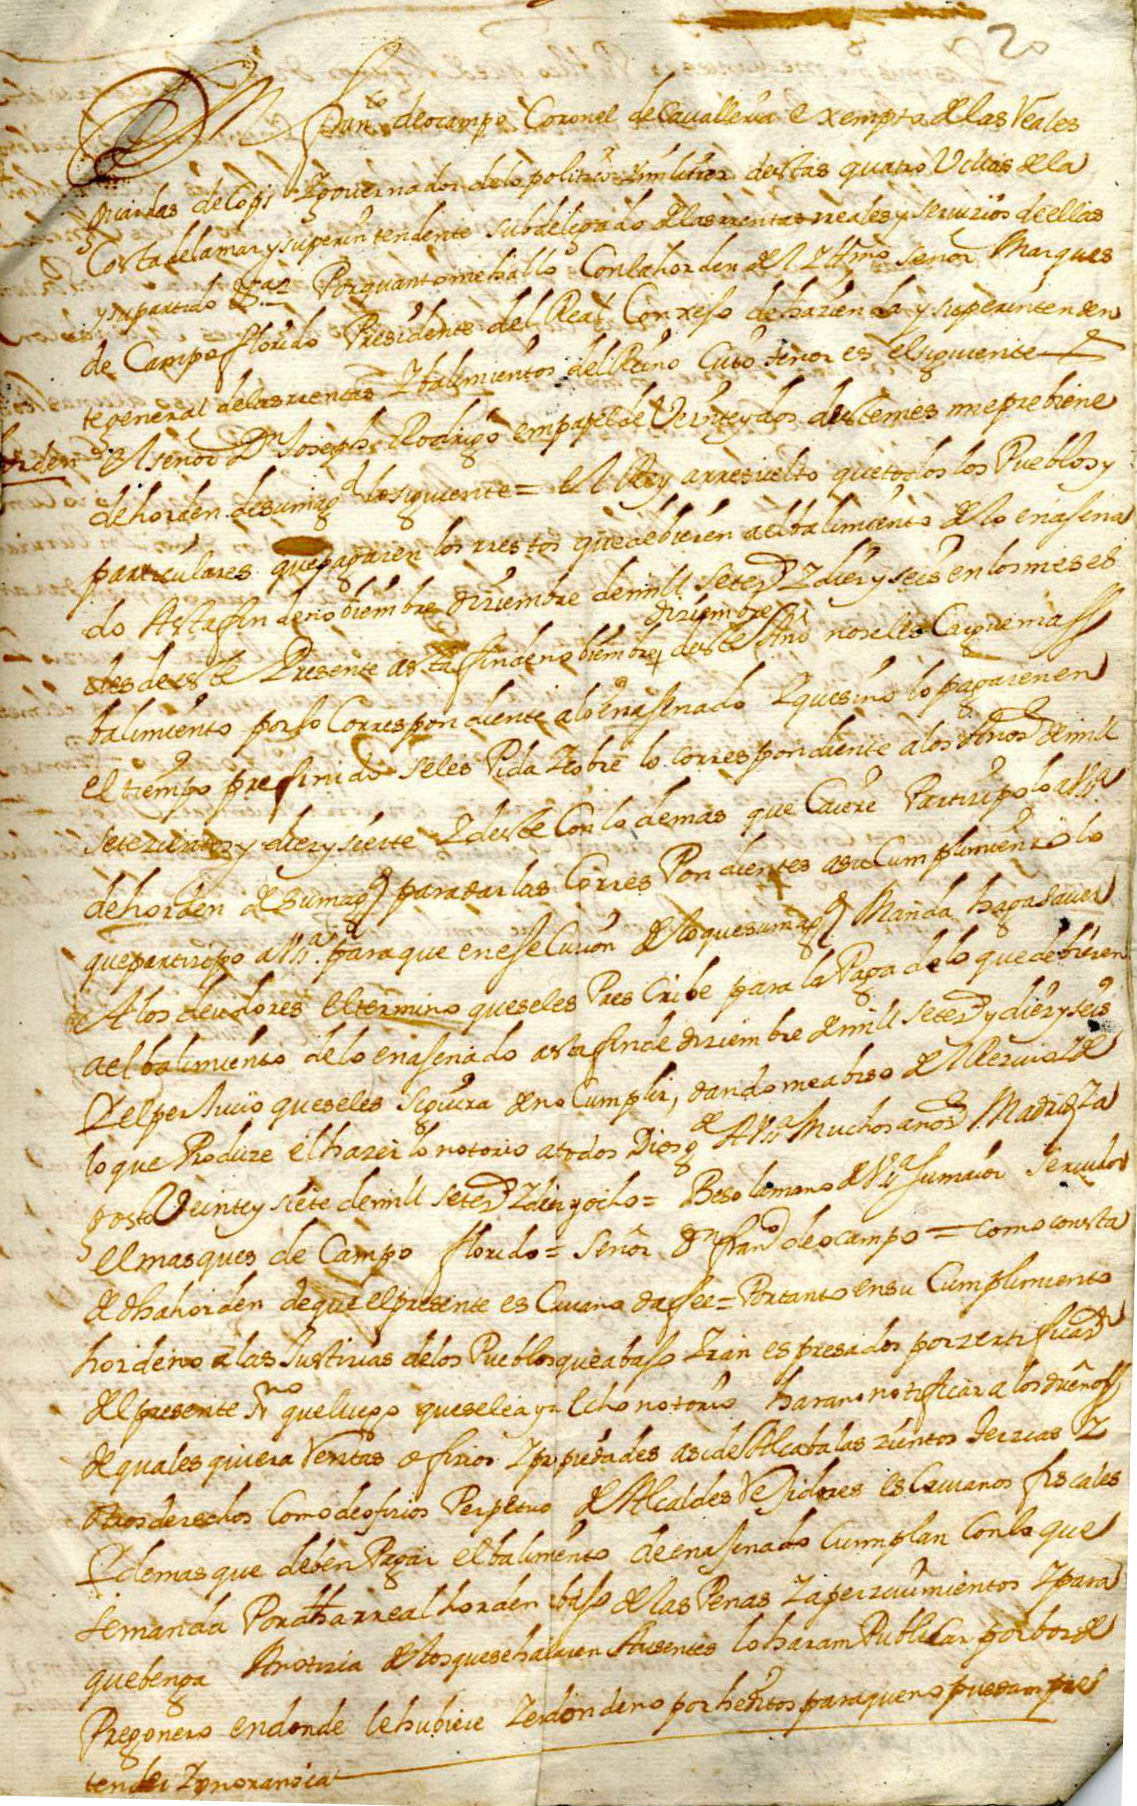 20
Dn Franco de ocampo Coronel de Cavalleria exempto de las Reales
guardas de Cops Y governador delo politico Y militar destas quatro Villas de la
Costa dela mar y superintendente subdelegado de las rrentas rreales y servizios de ellas
y su partido Porquanto me hallo Con la horden del Yllmo señor Marques
de Campo florido Presidente del Real Conxeso de hazienda y superintenden
te general de las rrentas Y balimientos del Reino Cuio tenor es el siguiente
horden El señor Dn Joseph Rodrigo en papel de Veinte y dos deste mes me prebiene
de horden de su magd lo siguiente = el Rey a rresuelto que todos los Pueblos y
particulares que pagaren los rrestos que debieren a el balimiento de lo enajena
do Asta fin de nobiembre diziembre de mill setezs Y diez y seis en los meses
desde este Presente asta fin de nobiembre diziembre deste Año no se les Cargue mas
balimiento por lo Correspondiente a lo enajenado Y que si no lo pagaren en
el tiempo prefinido se les Pida Y cobre lo correspondiente a los Años de mill
setezientos y diez y siete Y deste Con lo demas que Caiere Partizipolo a VS
de horden de su magd para dar las Correspondientes a su Cumplimiento lo
que partizipo a VS para que en ejecuzion de lo que su magd Manda haga saver
A los deudores el termino que se les Prescribe para la Paga de lo que debieren
a el balimiento de lo enajenado asta fin de diziembre de mill setezs y diez y seis
Y el perjuizio que se les seguira de no Cumplir, dandome abiso del Rezivo Y de
lo que Produze el hazerlo notorio a todos Dios gde A VS Muchos años Madrid Y a
gosto Veinte y siete de mill setezs Y diez y ocho = Beso la mano de VS su maior servidor
el marques de Campo florido = señor Dn franco de ocampo = como consta
de dha horden de que el presente escrivano da fee = Por tanto en su Cumplimiento
hordeno a las Justizias de los Pueblos que abajo Yran espresados por zertificazn
del presente ssno que luego que se les aya echo notorio haran notificar a los dueños
de quales quiera Rentas ofizios Y propiedades asi de Alcabalas zientos terzias Y
otros derechos Como de ofizios Perpetuo de Alcaldes Rejidores escrivanos fiscales
Y demas que deben Pagar el balimiento de enajenado Cumplan Con lo que
se manda Por dha rreal horden bajo de las Penas Y aperzivimientos Y para
que benga A notizia de los que se hallaren Ausentes lo haran Publicar por boz de
Pregonero en donde le hubiere Y en donde no por heditos para que no puedan pre
tender Ygnoranzia